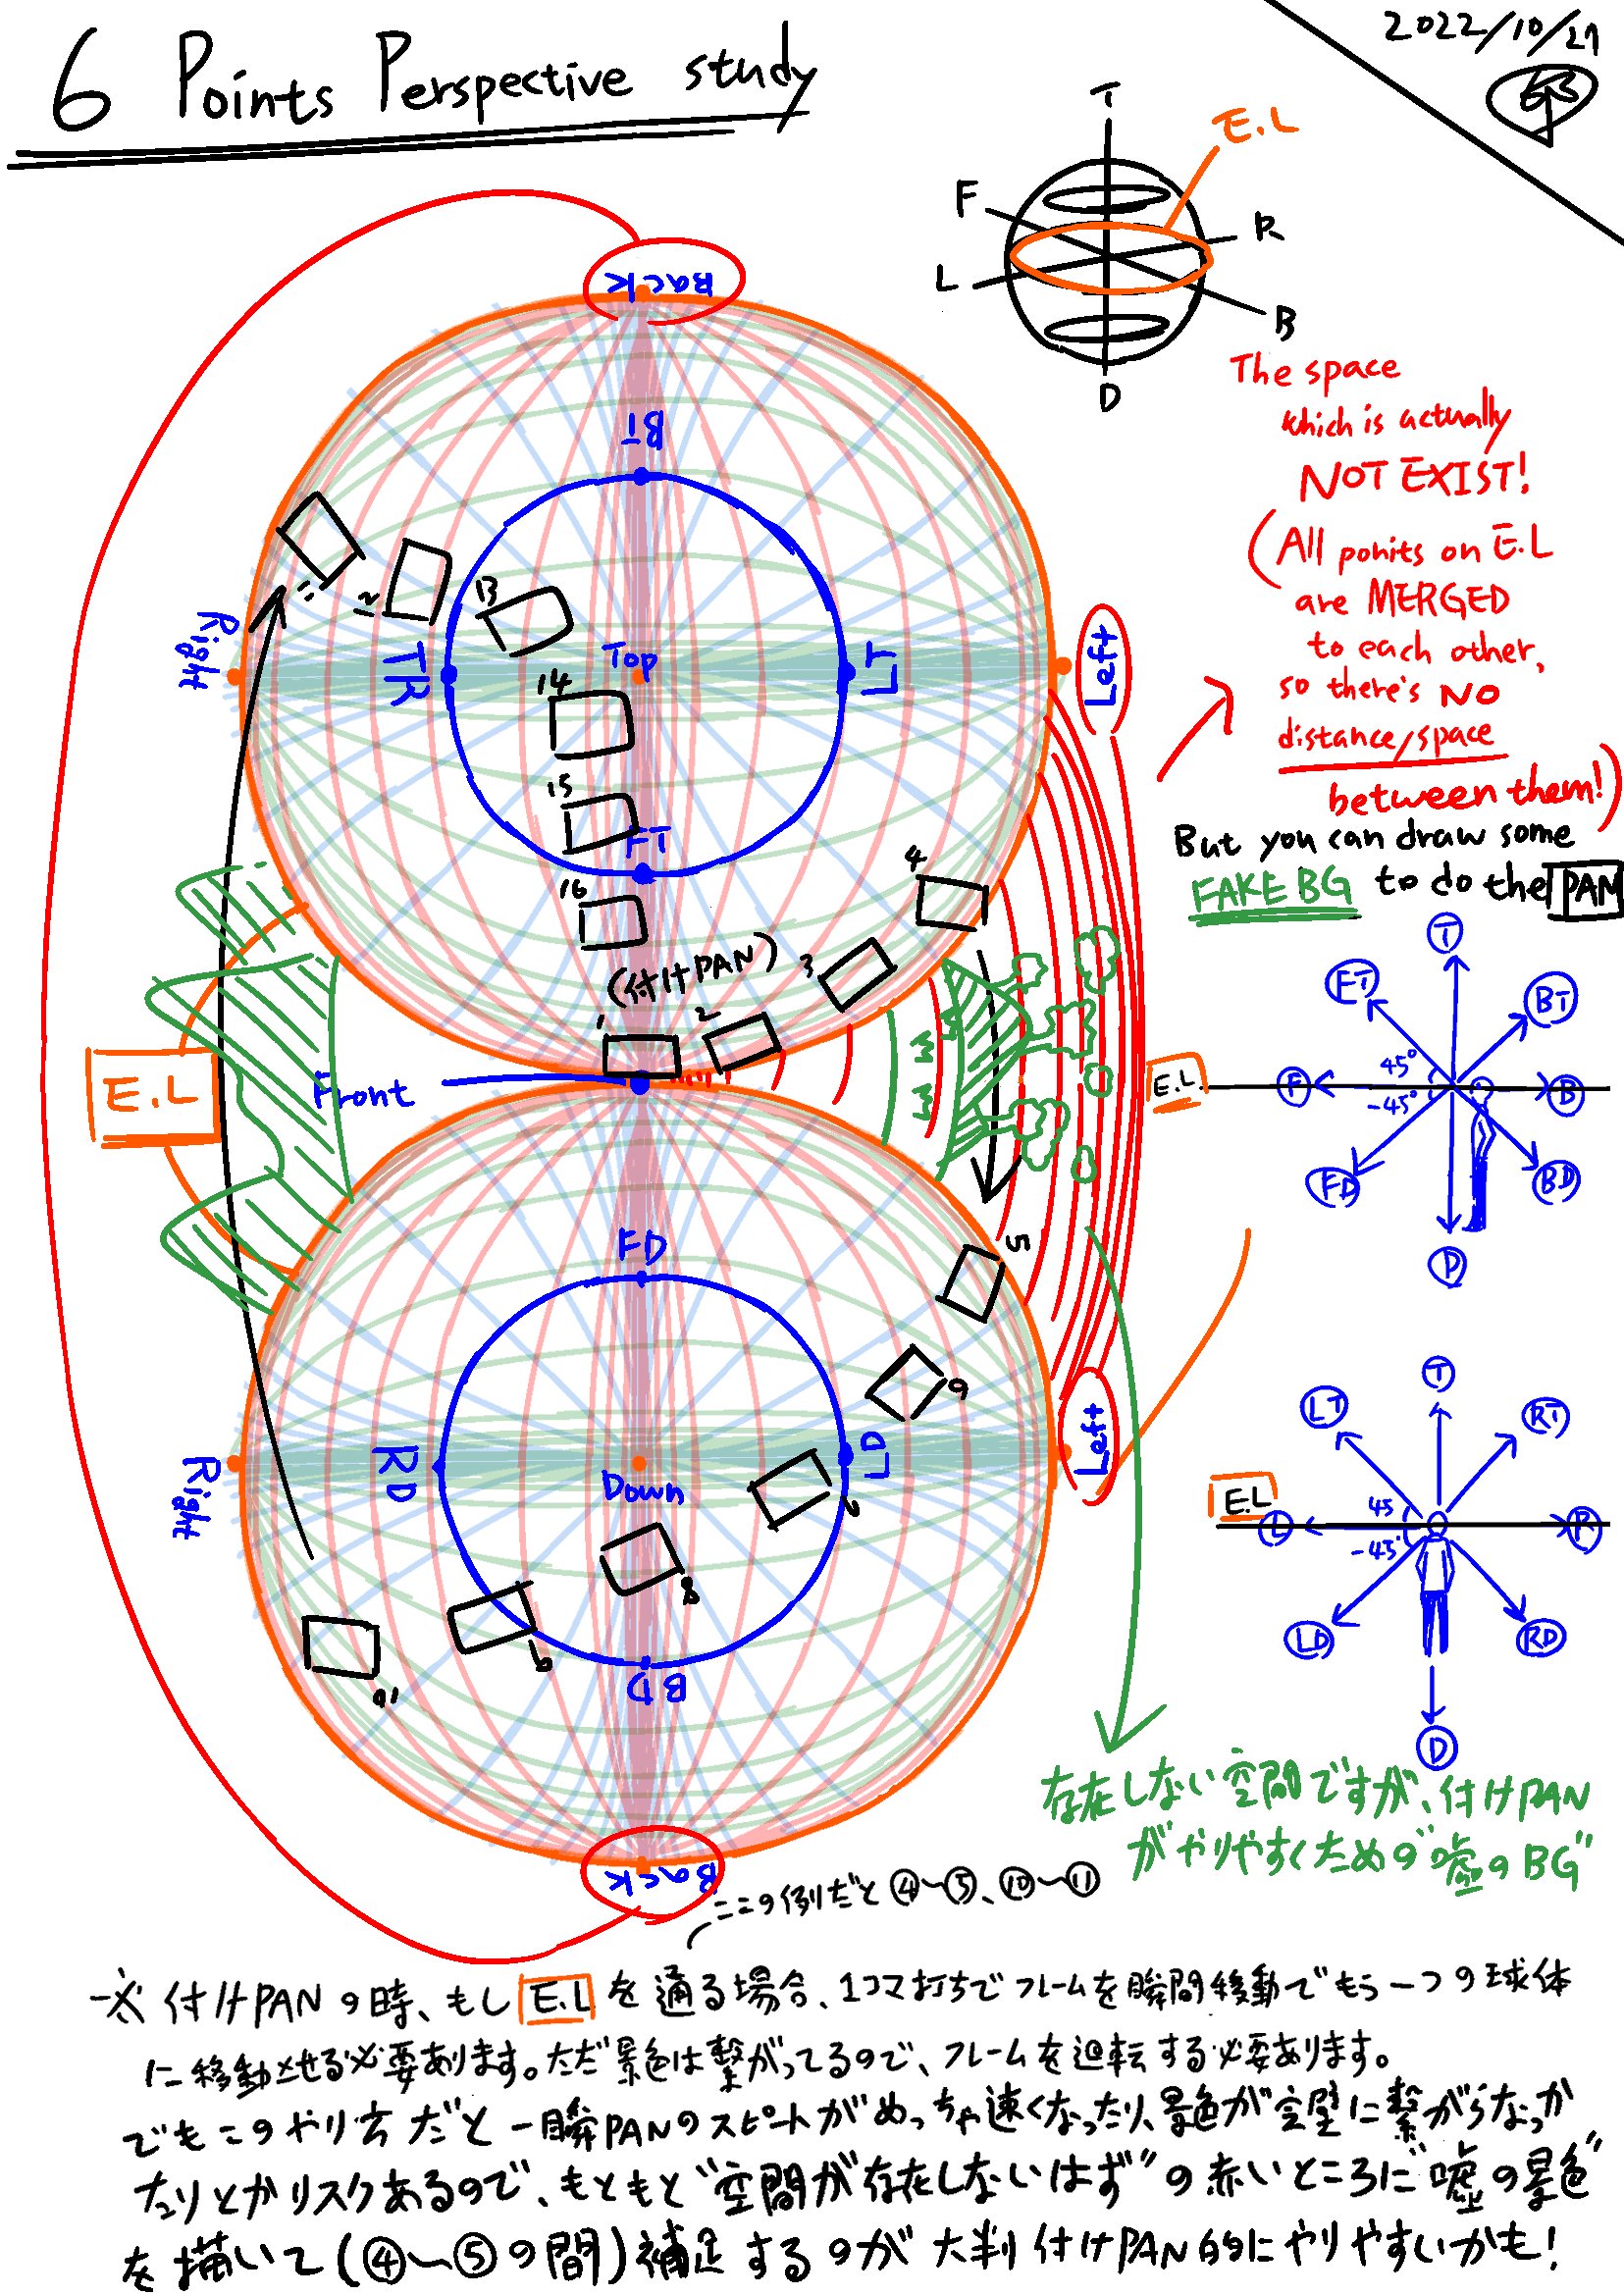 6 Points Perspective study
2022/10/27
T
E.L
F
R
L
B
D
The space
which is actually
NOT EXIST!
(All ponits on E.L
are MERGED
to each other,
so there's NO
distance/space
between them!)
But you can draw some
FAKE BG to do the PAM
Back
BT
Right
TR
Top
TL
Left
FT
11
12
13
14
15
16
(付けPAN)
1
2
3
4
Front
E.L
FD
RD
Down
LD
BD
Right
Left
Back
5
6
8
E.L
T
FT
BT
F
45°
-45°
B
FD
BD
D
T
LT
RT
E.L
L
45
-45°
R
LD
RD
D
存在しない空間ですが、付けPAN
がやりやすくための"嘘のBG"
ここの例だと④〜⑤、⑩〜⑪
※付けPANの時、もしE.Lを通る場合、1コマ打ちでフレームを瞬間移動でもう一つの球体
に移動させる必要あります。ただ景色は繋がってるので、フレームを廻転する必要あります。
でもこのやり方だと一瞬PANのスピートがめっちゃ速くなったり、景色が完璧に繋がらなっか
たりとかリスクあるので、もともと"空間が存在しないはず"の赤いところに"嘘の景色"
を描いて(④〜⑤の間)補足するのが大判付けPAN的にやりやすいかも!